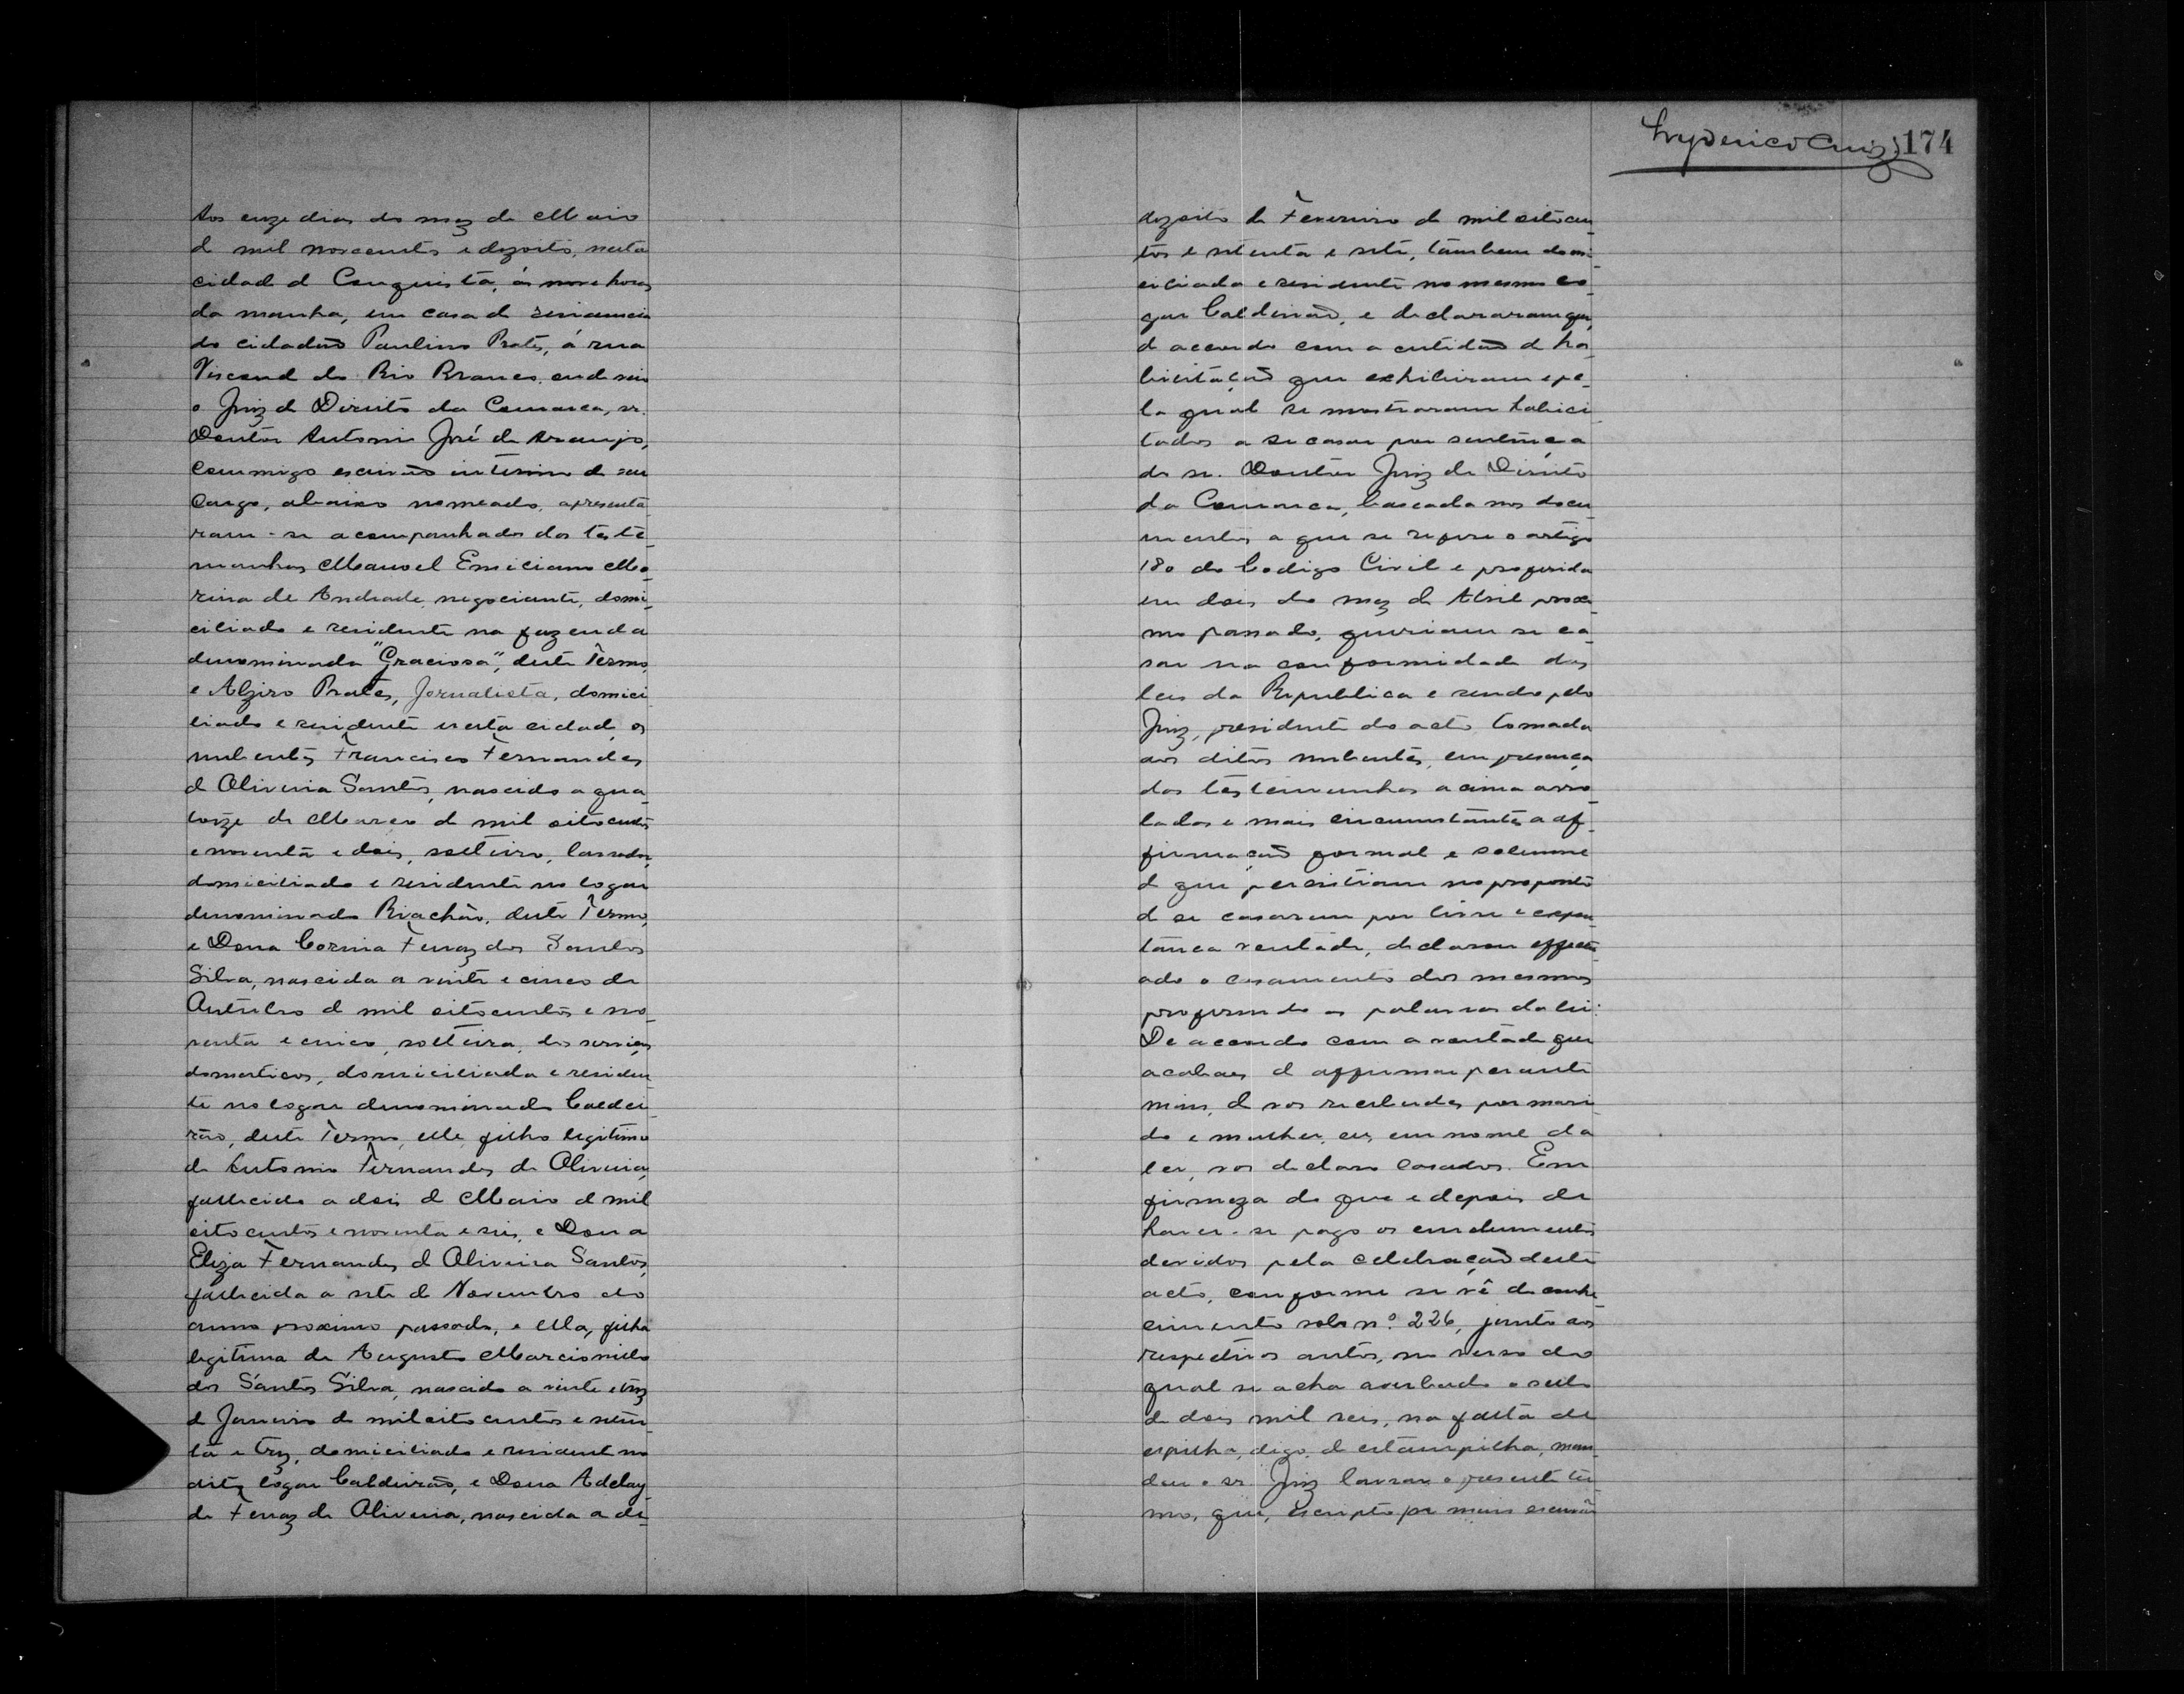 Aos onze dias do mez de Maio
de mil novecentos e dezoito, nesta
cidade de Conquista, ás nove horas
da manha, em casa de residencia
do cidadão Paulino Prates, á rua
Visconde do Rio Branco, onde veio
o Juiz de Direito da Comarca, sr.
Doutor Antonio José de Araujo,
commigo escrivão interino de seu
cargo, abaixo nomeado, apresenta-
ram-se acompanhados das teste-
munhas Manoel Emiliano Mo-
reira de Andrade, negociante, domi-
ciliado e residente na fazenda
denominada "Graciosa", deste Termo,
e Alziro Prates, Jornalista, domici-
liado e residente nesta cidade, os
nubentes Francisco Fernandes
de Oliveira Santos, nascido a qua-
torze de Março de mil oitocentos
e noventa e dois, solteiro, lavrador,
domiciliado e residente no logar
denominado Riachão, deste Termo,
e Dona Corina Ferraz dos Santos
Silva, nascida a vinte e cinco de
Outubro de mil oitocentos e no-
venta e cinco, solteira, dos serviços
domesticos, domiciliada e residen-
te no logar denominado Caldei-
rão, deste Termo, elle filho legitimo
de Antonio Fernandes de Oliveira,
fallecido a dois de Maio de mil
oitocentos e noventa e seis, e Dona
Eliza Fernandes de Oliveira Santos,
fallecida a sete de Novembro do
anno proximo passado, e ella, filha
legitima de Augusto Marcionillo
dos Santos Silva, nascido a vinte e trez
de Janeiro de mil oitocentos e seten-
ta e trez, domiciliado e residente no
dito logar Caldeirão, e Dona Adelay-
de Ferraz de Oliveira, nascida a de-
174
dezoito de Fevereiro de mil oitocen-
tos e setenta e sete, tambem domi-
ciliada e residente no mesmo lo-
gar Caldeirão, e declararam que,
de accordo com a certidão de ha-
bilitação que exhibiram e pe-
la qual se mostraram habili-
tados a se casar por sentença
do sr. Doutor Juiz de Direito
da Comarca, baseada nos docu-
mentos a que se refere o artigo
180 do Codigo Civil e proferida
em dois do mez de Abril proxi-
mo passado, queriam se ca-
sar na conformidade das
leis da Republica e sendo pelo
Juiz, presidente do acto, tomada
aos ditos nubentes, em presença
das testemunhas acima arro-
ladas e mais circumstantes a af-
firmação formal e solemne
de que persistiam no proposito
de se casarem por livre e expon-
tanea vontade, declarou effectu-
ado o casamento dos mesmos
proferindo as palavras da lei:
De accordo com a vontade que
acabaes de affirmar perante
mim, de vos receberdes por mari-
do e mulher, eu, em nome da
lei, vos declaro casados. Em
firmeza do que e depois de
haver-se pago os emolumentos
devidos pela celebração deste
acto, conforme se vê do conhe-
cimento sob nº. 226, junto aos
respectivos autos, no verso do
qual se acha averbado o sello
de dois mil reis, na falta de
espilha, digo, de estampilha, man-
dou o sr. Juiz lavrar o presente ter-
mo, que, escripto por mim escrivão